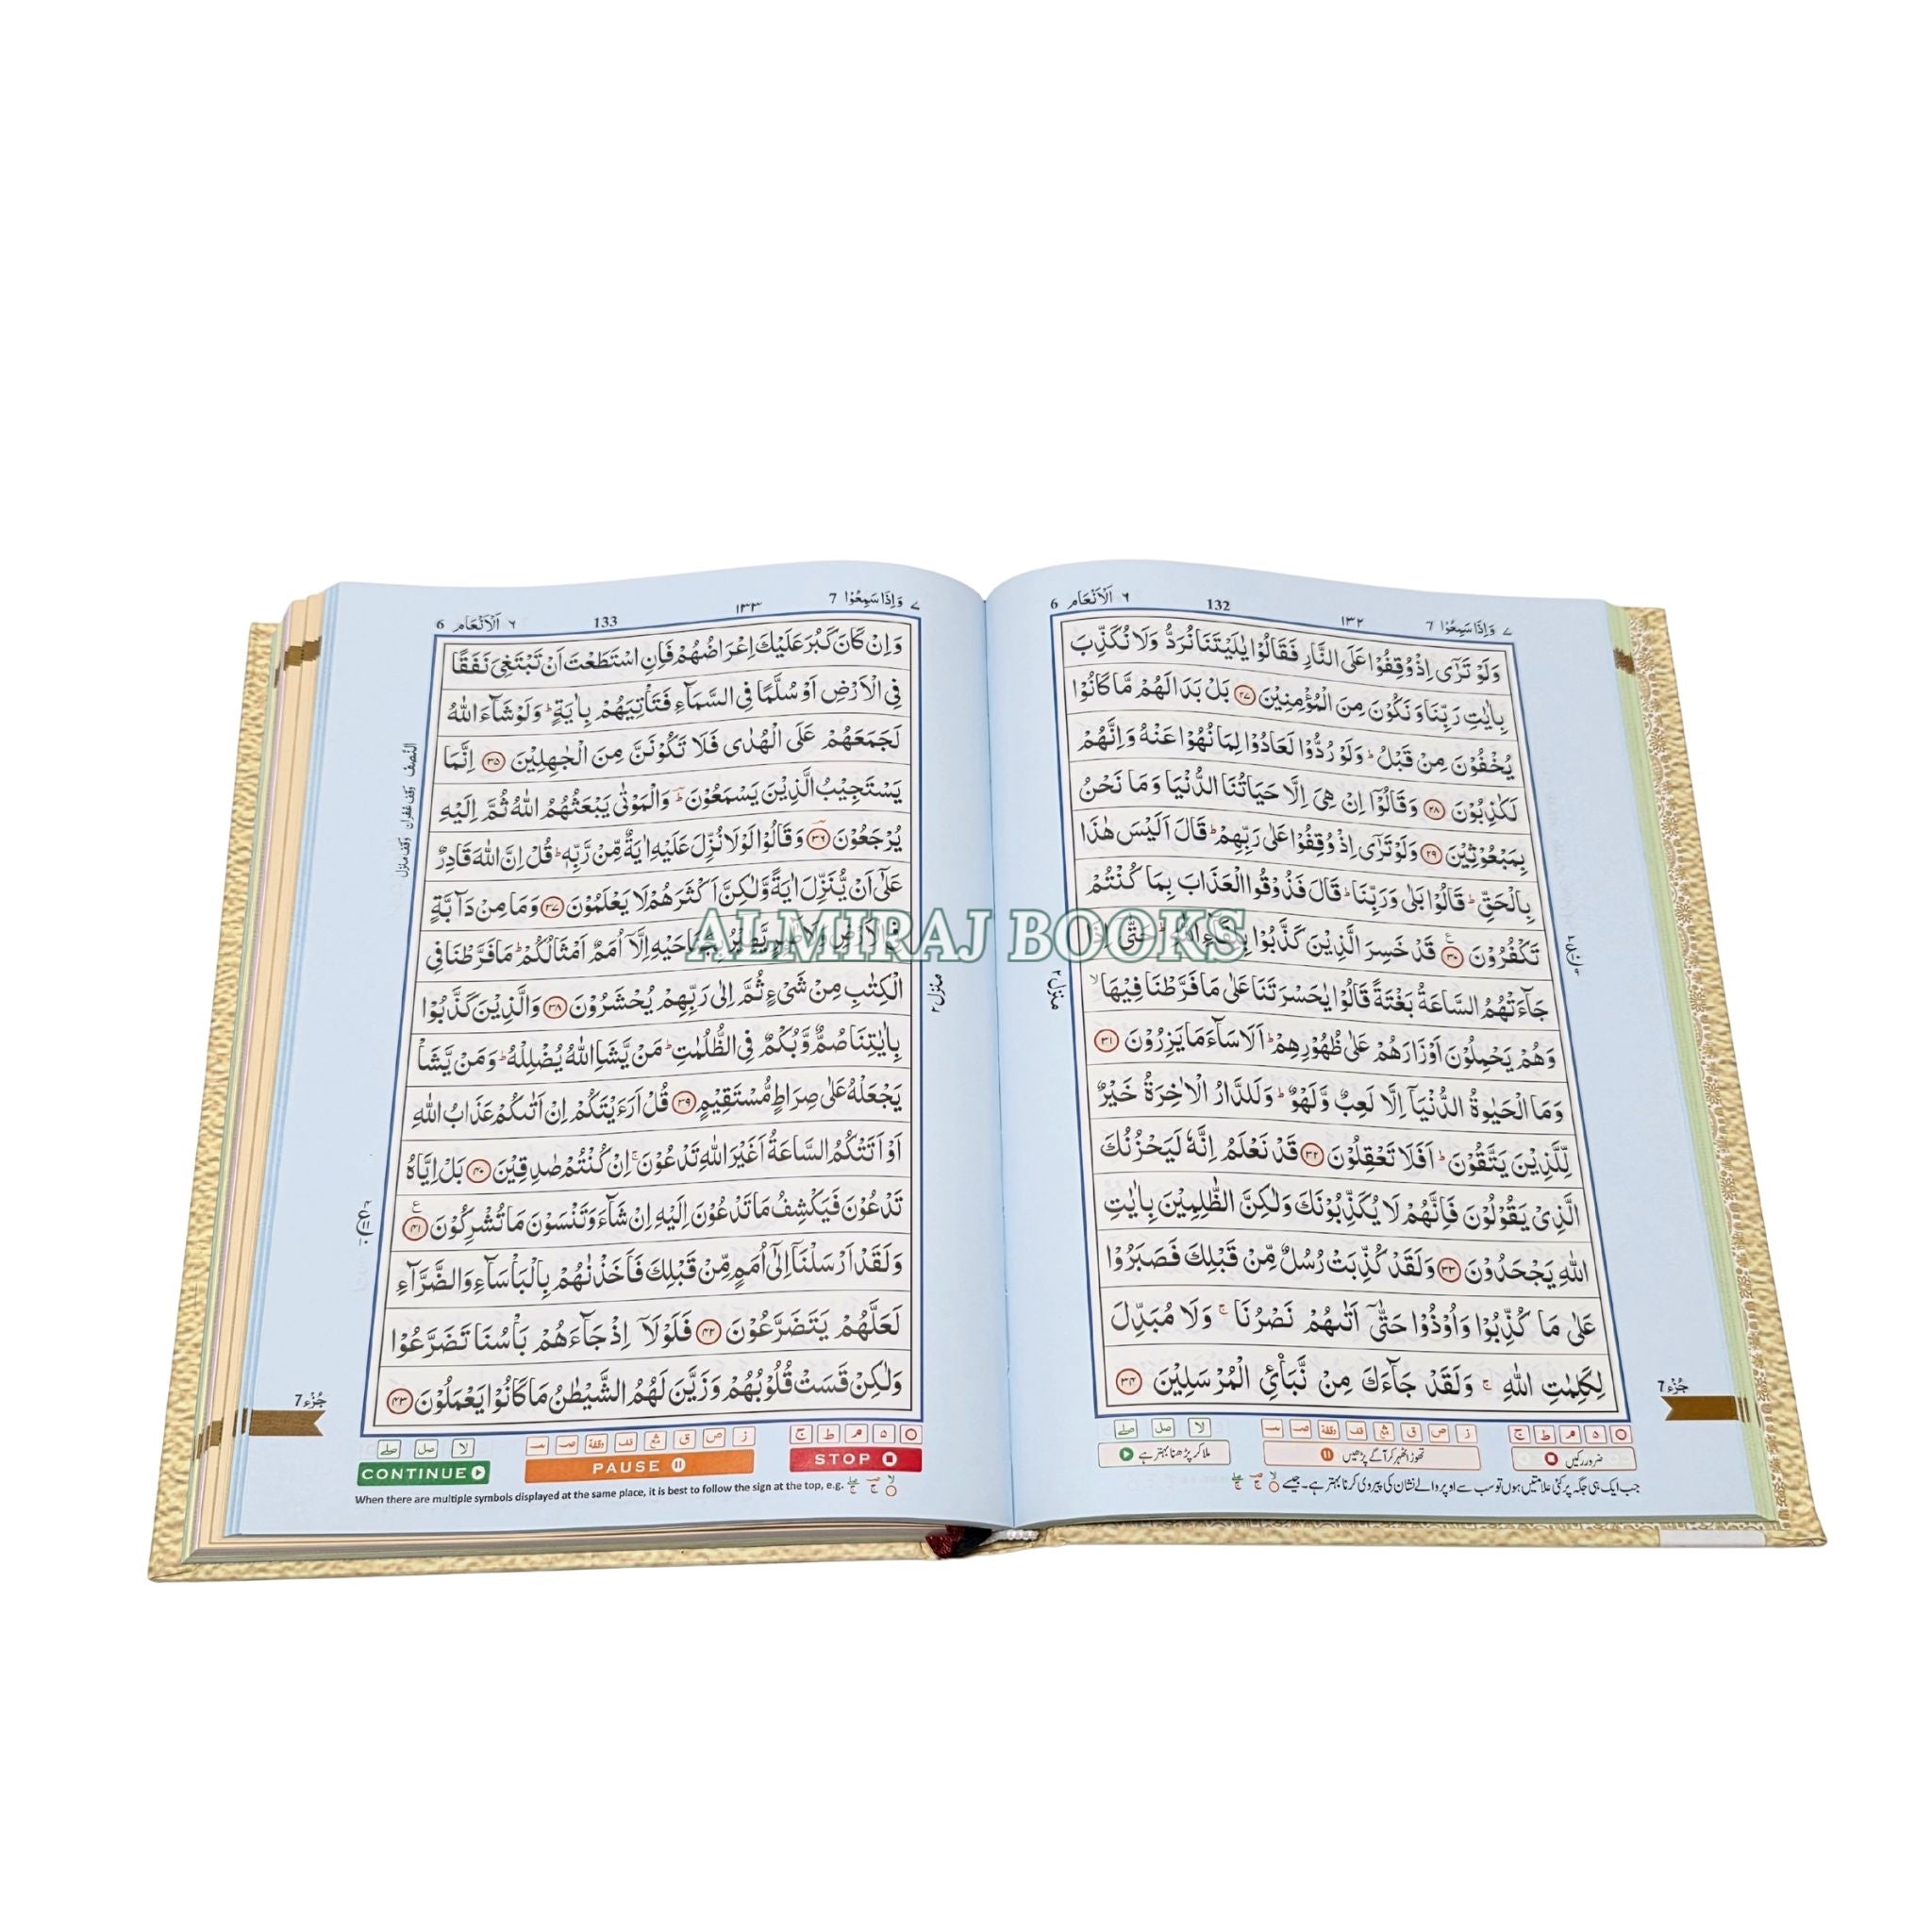 ٦ اَلْاَنْعَام 6
132
١٣٢
٧ وَاِذَاسَمِعُوْا 7
وَلَوْ تَرٰٓى اِذْ وُقِفُوْا عَلَى النَّارِ فَقَالُوْا يٰلَيْتَنَا نُرَدُّ وَلَا نُكَذِّبَ
بِاٰيٰتِ رَبِّنَا وَنَكُوْنَ مِنَ الْمُؤْمِنِيْنَ ۝۲۷ بَلْ بَدَا لَهُمْ مَّا كَانُوْا
يُخْفُوْنَ مِنْ قَبْلُ ؕ وَلَوْ رُدُّوْا لَعَادُوْا لِمَا نُهُوْا عَنْهُ وَاِنَّهُمْ
لَكٰذِبُوْنَ ۝۲۸ وَقَالُوْٓا اِنْ هِىَ اِلَّا حَيَاتُنَا الدُّنْيَا وَمَا نَحْنُ
بِمَبْعُوْثِيْنَ ۝۲۹ وَلَوْ تَرٰٓى اِذْ وُقِفُوْا عَلٰى رَبِّهِمْ ؕ قَالَ اَلَيْسَ هٰذَا
بِالْحَقِّ ؕ قَالُوْا بَلٰى وَرَبِّنَا ؕ قَالَ فَذُوْقُوا الْعَذَابَ بِمَا كُنْتُمْ
تَكْفُرُوْنَ ۝۳۰ قَدْ خَسِرَ الَّذِيْنَ كَذَّبُوْا بِلِقَآءِ اللّٰهِ ؕ حَتّٰٓى اِذَا
جَآءَتْهُمُ السَّاعَةُ بَغْتَةً قَالُوْا يٰحَسْرَتَنَا عَلٰى مَا فَرَّطْنَا فِيْهَا ۙ
وَهُمْ يَحْمِلُوْنَ اَوْزَارَهُمْ عَلٰى ظُهُوْرِهِمْ ؕ اَلَا سَآءَ مَا يَزِرُوْنَ ۝۳۱
وَمَا الْحَيٰوةُ الدُّنْيَآ اِلَّا لَعِبٌ وَّلَهْوٌ ؕ وَلَلدَّارُ الْاٰخِرَةُ خَيْرٌ
لِّلَّذِيْنَ يَتَّقُوْنَ ؕ اَفَلَا تَعْقِلُوْنَ ۝۳۲ قَدْ نَعْلَمُ اِنَّهٗ لَيَحْزُنُكَ
الَّذِىْ يَقُوْلُوْنَ فَاِنَّهُمْ لَا يُكَذِّبُوْنَكَ وَلٰكِنَّ الظّٰلِمِيْنَ بِاٰيٰتِ
اللّٰهِ يَجْحَدُوْنَ ۝۳۳ وَلَقَدْ كُذِّبَتْ رُسُلٌ مِّنْ قَبْلِكَ فَصَبَرُوْا
عَلٰى مَا كُذِّبُوْا وَاُوْذُوْا حَتّٰٓى اَتٰىهُمْ نَصْرُنَا ۚ وَلَا مُبَدِّلَ
لِكَلِمٰتِ اللّٰهِ ۚ وَلَقَدْ جَآءَكَ مِنْ نَّبَاِى۟ الْمُرْسَلِيْنَ ۝۳۴
منزل ۲
جُزْء 7
ه م ط ج
ز ص ق قف وقفة
لا صل صلے
ضرور رکیں
تھوڑا ٹھہر کر آگے پڑھیں
ملا کر پڑھنا بہتر ہے
جب ایک ہی جگہ پر کئی علامتیں ہوں تو سب سے اوپر والے نشان کی پیروی کرنا بہتر ہے۔ جیسے
٦ اَلْاَنْعَام 6
133
١٣٣
٧ وَاِذَاسَمِعُوْا 7
وَاِنْ كَانَ كَبُرَ عَلَيْكَ اِعْرَاضُهُمْ فَاِنِ اسْتَطَعْتَ اَنْ تَبْتَغِىَ نَفَقًا
فِى الْاَرْضِ اَوْ سُلَّمًا فِى السَّمَآءِ فَتَاْتِيَهُمْ بِاٰيَةٍ ؕ وَلَوْ شَآءَ اللّٰهُ
لَجَمَعَهُمْ عَلَى الْهُدٰى فَلَا تَكُوْنَنَّ مِنَ الْجٰهِلِيْنَ ۝۳۵ اِنَّمَا
يَسْتَجِيْبُ الَّذِيْنَ يَسْمَعُوْنَ ؕ وَالْمَوْتٰى يَبْعَثُهُمُ اللّٰهُ ثُمَّ اِلَيْهِ
يُرْجَعُوْنَ ۝۳۶ وَقَالُوْا لَوْلَا نُزِّلَ عَلَيْهِ اٰيَةٌ مِّنْ رَّبِّهٖ ؕ قُلْ اِنَّ اللّٰهَ قَادِرٌ
عَلٰٓى اَنْ يُّنَزِّلَ اٰيَةً وَّلٰكِنَّ اَكْثَرَهُمْ لَا يَعْلَمُوْنَ ۝۳۷ وَمَا مِنْ دَآبَّةٍ
فِى الْاَرْضِ وَلَا طٰٓئِرٍ يَّطِيْرُ بِجَنَاحَيْهِ اِلَّآ اُمَمٌ اَمْثَالُكُمْ ؕ مَا فَرَّطْنَا فِى
الْكِتٰبِ مِنْ شَىْءٍ ثُمَّ اِلٰى رَبِّهِمْ يُحْشَرُوْنَ ۝۳۸ وَالَّذِيْنَ كَذَّبُوْا
بِاٰيٰتِنَا صُمٌّ وَّبُكْمٌ فِى الظُّلُمٰتِ ؕ مَنْ يَّشَاِ اللّٰهُ يُضْلِلْهُ ؕ وَمَنْ يَّشَاْ
يَجْعَلْهُ عَلٰى صِرَاطٍ مُّسْتَقِيْمٍ ۝۳۹ قُلْ اَرَءَيْتَكُمْ اِنْ اَتٰىكُمْ عَذَابُ اللّٰهِ
اَوْ اَتَتْكُمُ السَّاعَةُ اَغَيْرَ اللّٰهِ تَدْعُوْنَ ۚ اِنْ كُنْتُمْ صٰدِقِيْنَ ۝۴۰ بَلْ اِيَّاهُ
تَدْعُوْنَ فَيَكْشِفُ مَا تَدْعُوْنَ اِلَيْهِ اِنْ شَآءَ وَتَنْسَوْنَ مَا تُشْرِكُوْنَ ۝۴۱
وَلَقَدْ اَرْسَلْنَآ اِلٰٓى اُمَمٍ مِّنْ قَبْلِكَ فَاَخَذْنٰهُمْ بِالْبَاْسَآءِ وَالضَّرَّآءِ
لَعَلَّهُمْ يَتَضَرَّعُوْنَ ۝۴۲ فَلَوْلَآ اِذْ جَآءَهُمْ بَاْسُنَا تَضَرَّعُوْا
وَلٰكِنْ قَسَتْ قُلُوْبُهُمْ وَزَيَّنَ لَهُمُ الشَّيْطٰنُ مَا كَانُوْا يَعْمَلُوْنَ ۝۴۳
النصف وقف غفران وقف منزل
منزل ۲
جُزْء 7
ه م ط ج
ز ص ق قف وقفة
لا صل صلے
CONTINUE
PAUSE
STOP
When there are multiple symbols displayed at the same place, it is best to follow the sign at the top, e.g.
ALMIRAJ BOOKS